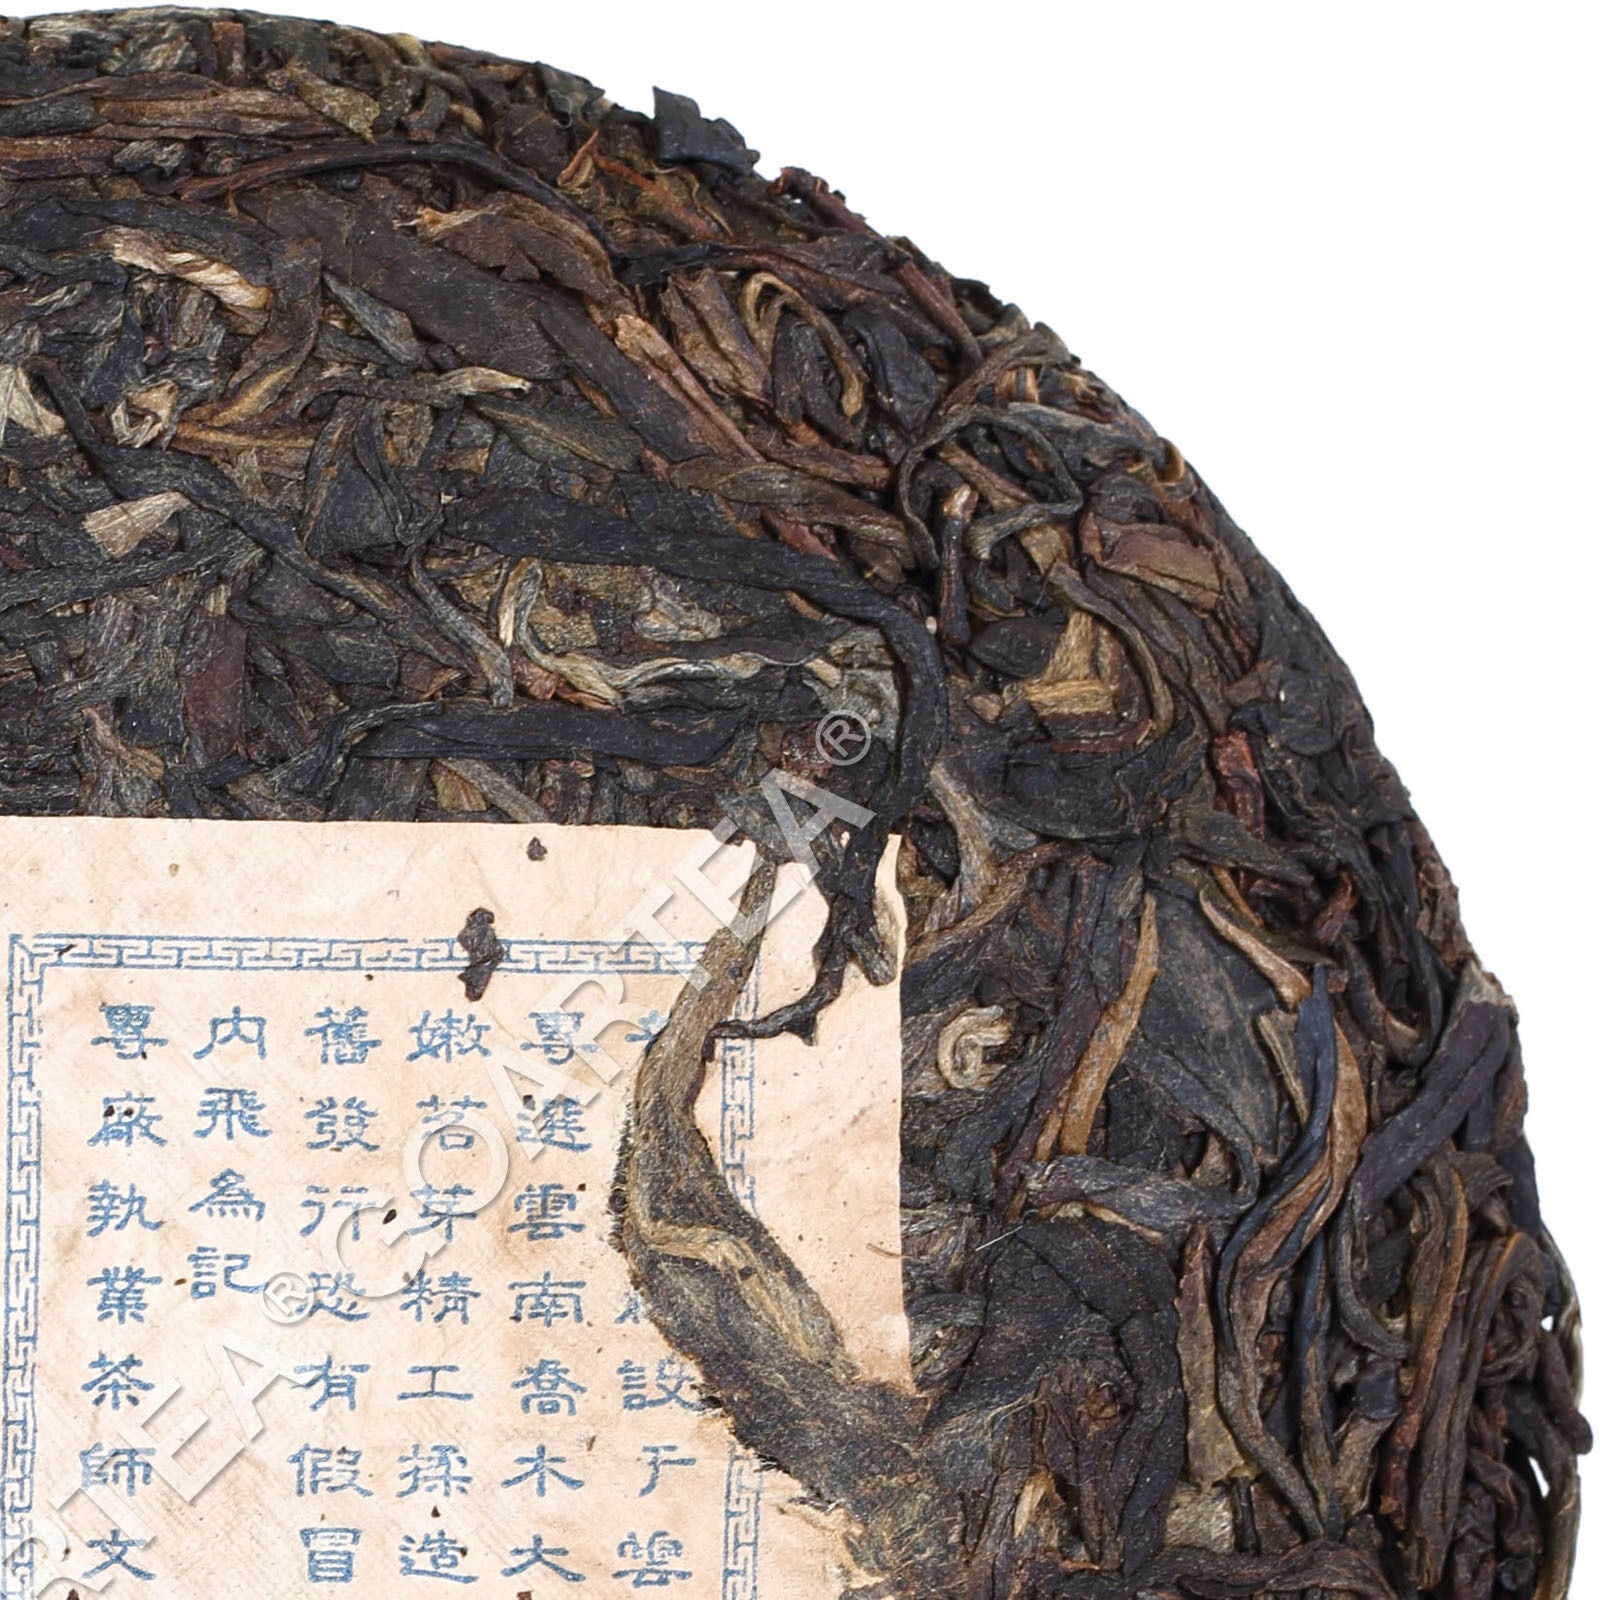 設于雲
專選雲南喬木大
嫩茗芽精工揉造
舊發行恐有假冒
內飛為記
專廠執業茶師文
GOARTEA®
RTEA®